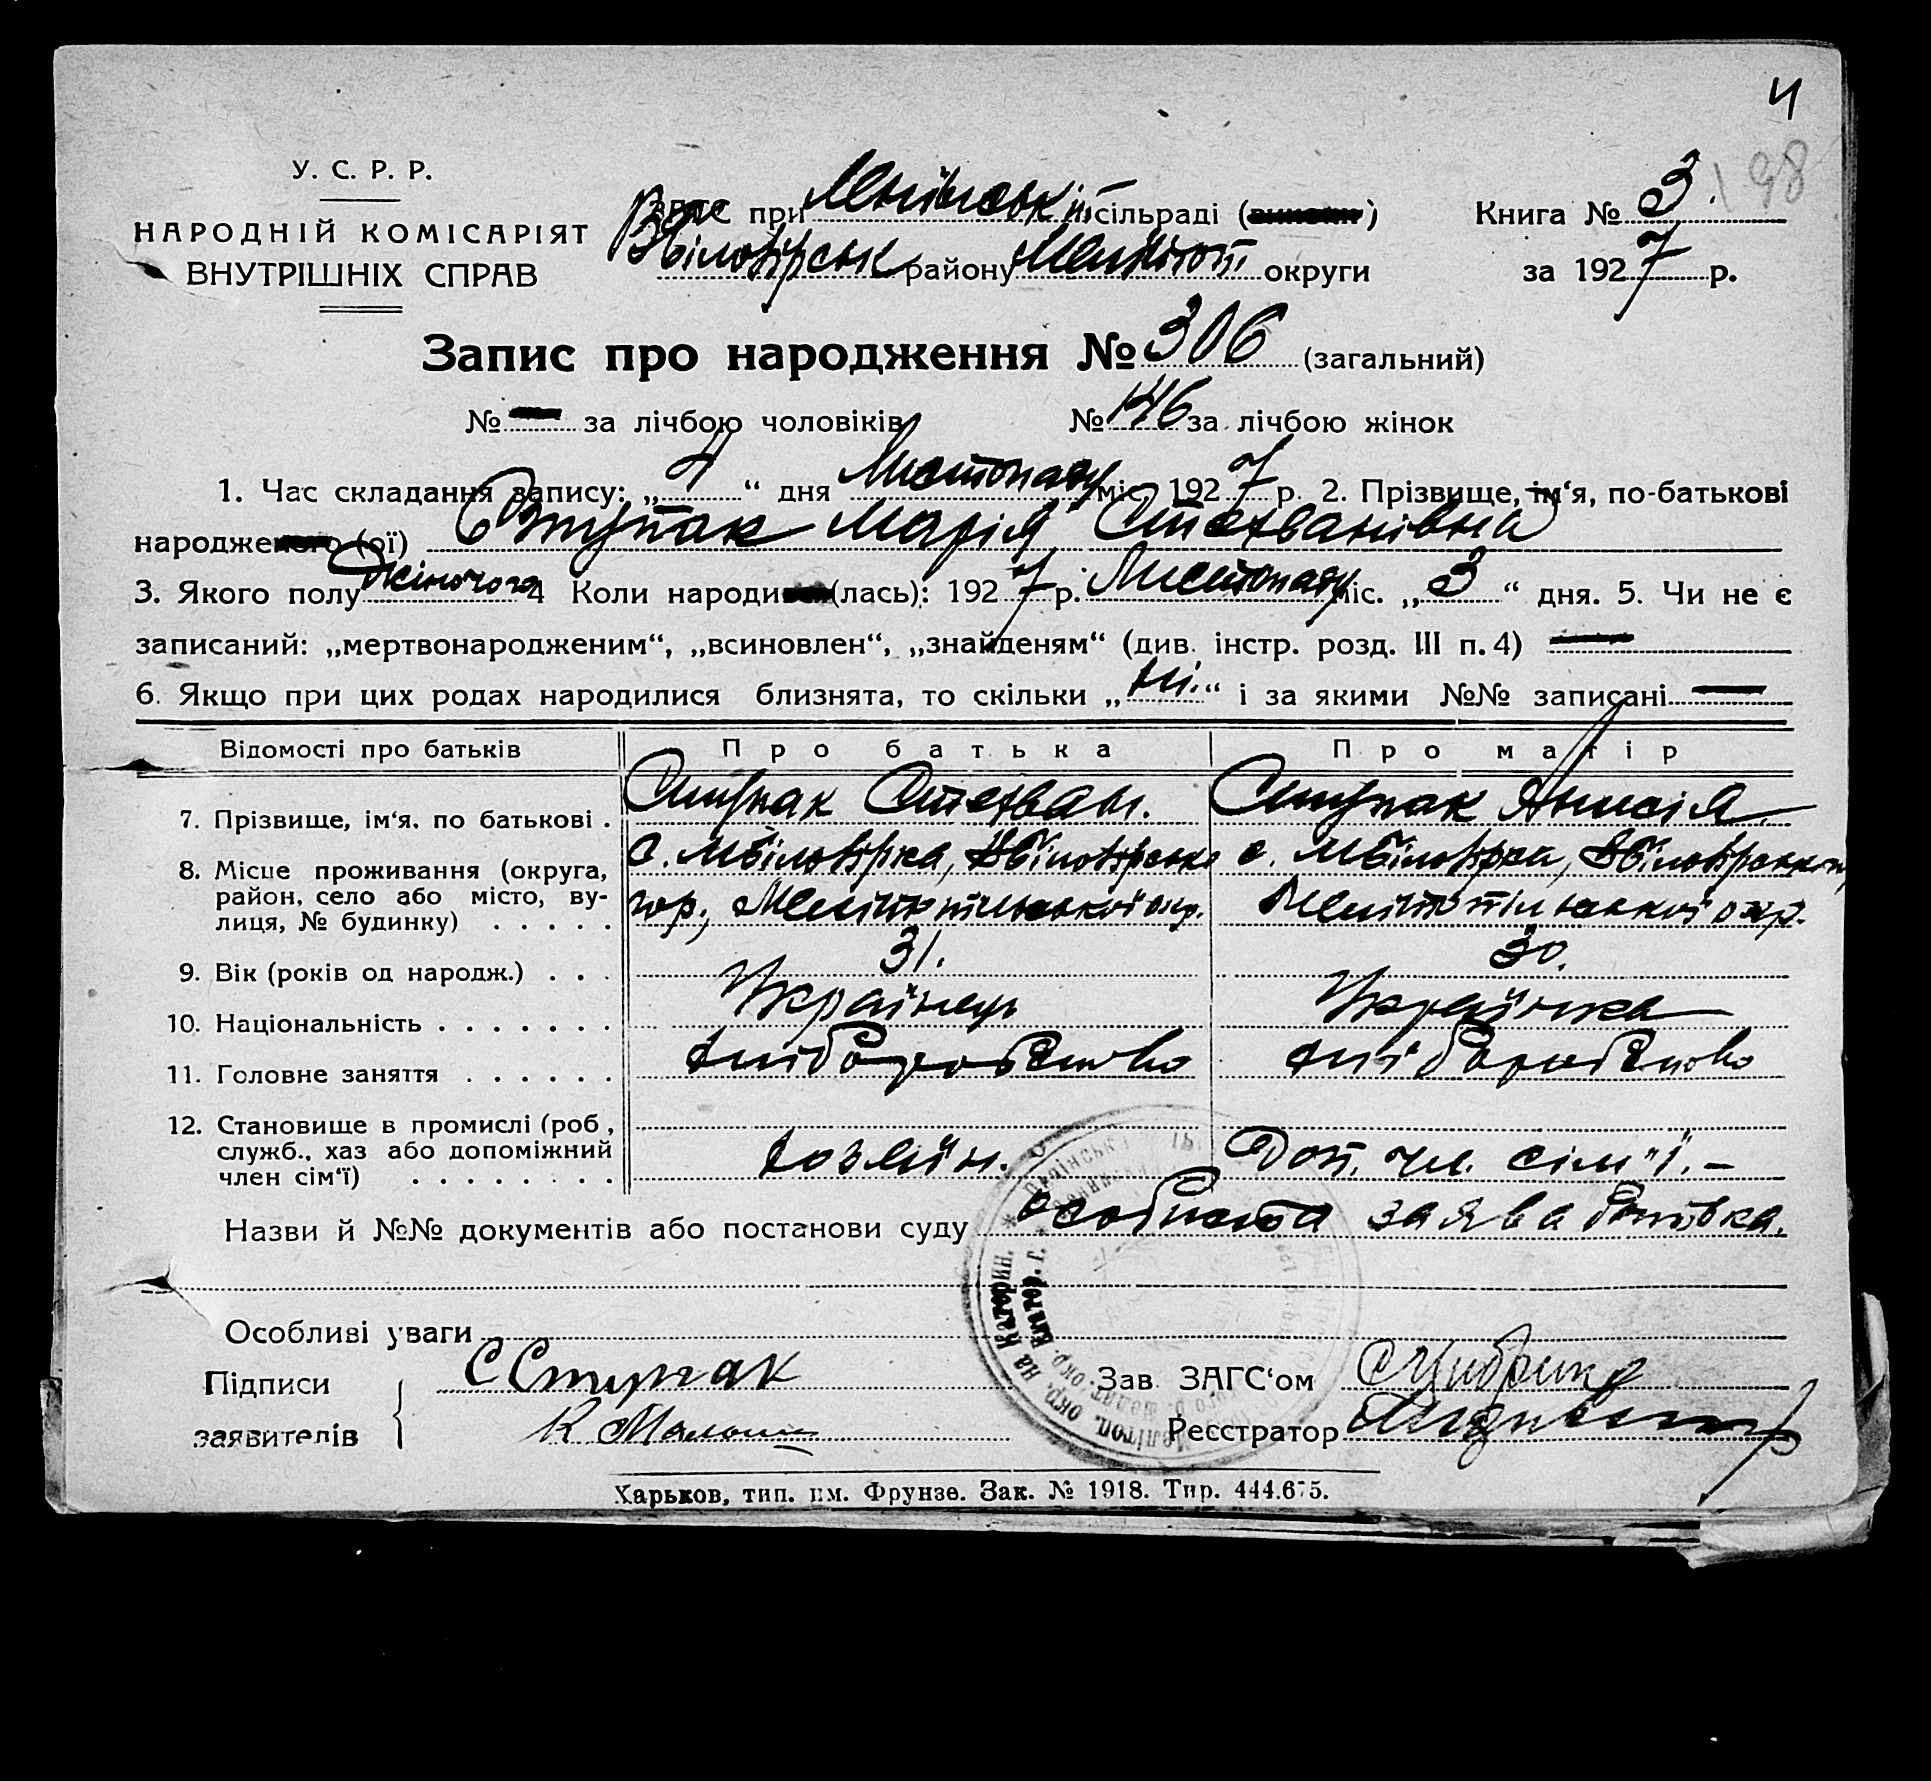 4
198
У. С. Р. Р.
НАРОДНІЙ КОМІСАРІЯТ
ВНУТРІШНІХ СПРАВ
ЗАГС при Ленінськ. сільраді
Книга № 3.
Вбілозірськ району Меліт. округи
за 1927 р.
Запис про народження № 306 (загальний)
№ — за лічбою чоловіків № 146 за лічбою жінок
1. Час складання запису: „4“ дня Листопаду міс. 1927 р. 2. Прізвище, ім‘я, по-батькові
народже (ої) Ступак Марія Стехванівна
3. Якого полу жіночого 4 Коли народи (лась): 1927 р. Листопаду міс. „3“ дня. 5. Чи не є
записаний: „мертвонародженим“, „всиновлен“, „знайденям“ (див. інстр. розд. III п. 4) —
6. Якщо при цих родах народилися близнята, то скільки „ні.“ і за якими №№ записані —
Відомості про батьків Про батька Про матір
7. Прізвище, ім‘я, по батькові . Ступак Стехван. Ступак Анисія.
8. Місце проживання (округа, с. Мбілозірка, Вбілозірськ с. Мбілозірки,
район, село або місто, ву-
лиця, № будинку) . . . . . Мелітопільської окр. Мелітопільської окр.
9. Вік (років од народж.) . . . 31. 30.
10. Національність . . . . . . . Українець Українка
11. Головне заняття . . . . . . хліборобство хліборобство
12. Становище в промислі (роб.,
служб., хаз або допоміжний хозяїн. Доп. чл. сім'ї. –
член сім‘ї) . . . . . . . .
Назви й №№ документів або постанови суду особиста заява батька.
Особливі уваги
Підписи С Ступак Зав. ЗАГС‘ом
заявителів Реєстратор
Харьков, тип. им. Фрунзе. Зак. № 1918. Тир. 444.675.